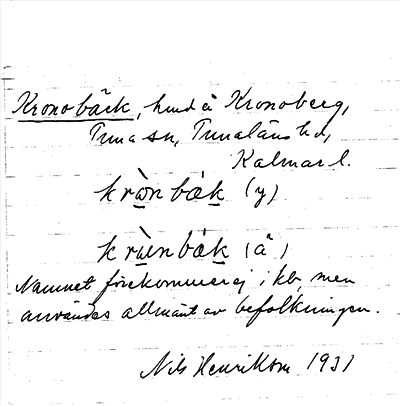 Kronobäck, hmd å Kronoberg,
Tuna sn, Tunaläns hd,
Kalmar l.
kròn bä̀k (y)
krùen bä̀k (ä)
Namnet förekommer ej i kb, men
användes allmänt av befolkningen.
Nils Henrikson 1931